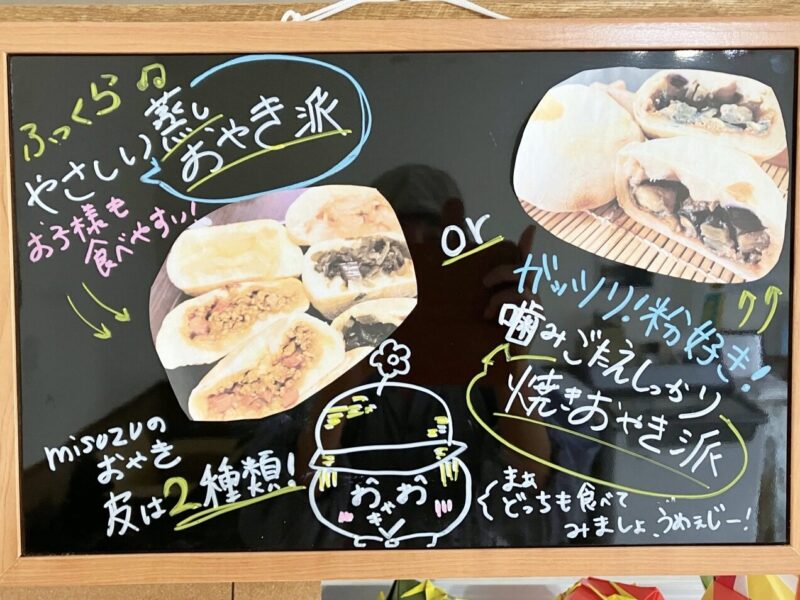 ふっくら♫
やさしい蒸し
おやき派
お子様も
食べやすい!
or
ガッツリ!粉好き!
噛みごたえしっかり
焼きおやき派
misuzuの
おやき
皮は2種類!
おやお
き
まぁ
どっちも食べて
みましょ、うめぇじー!